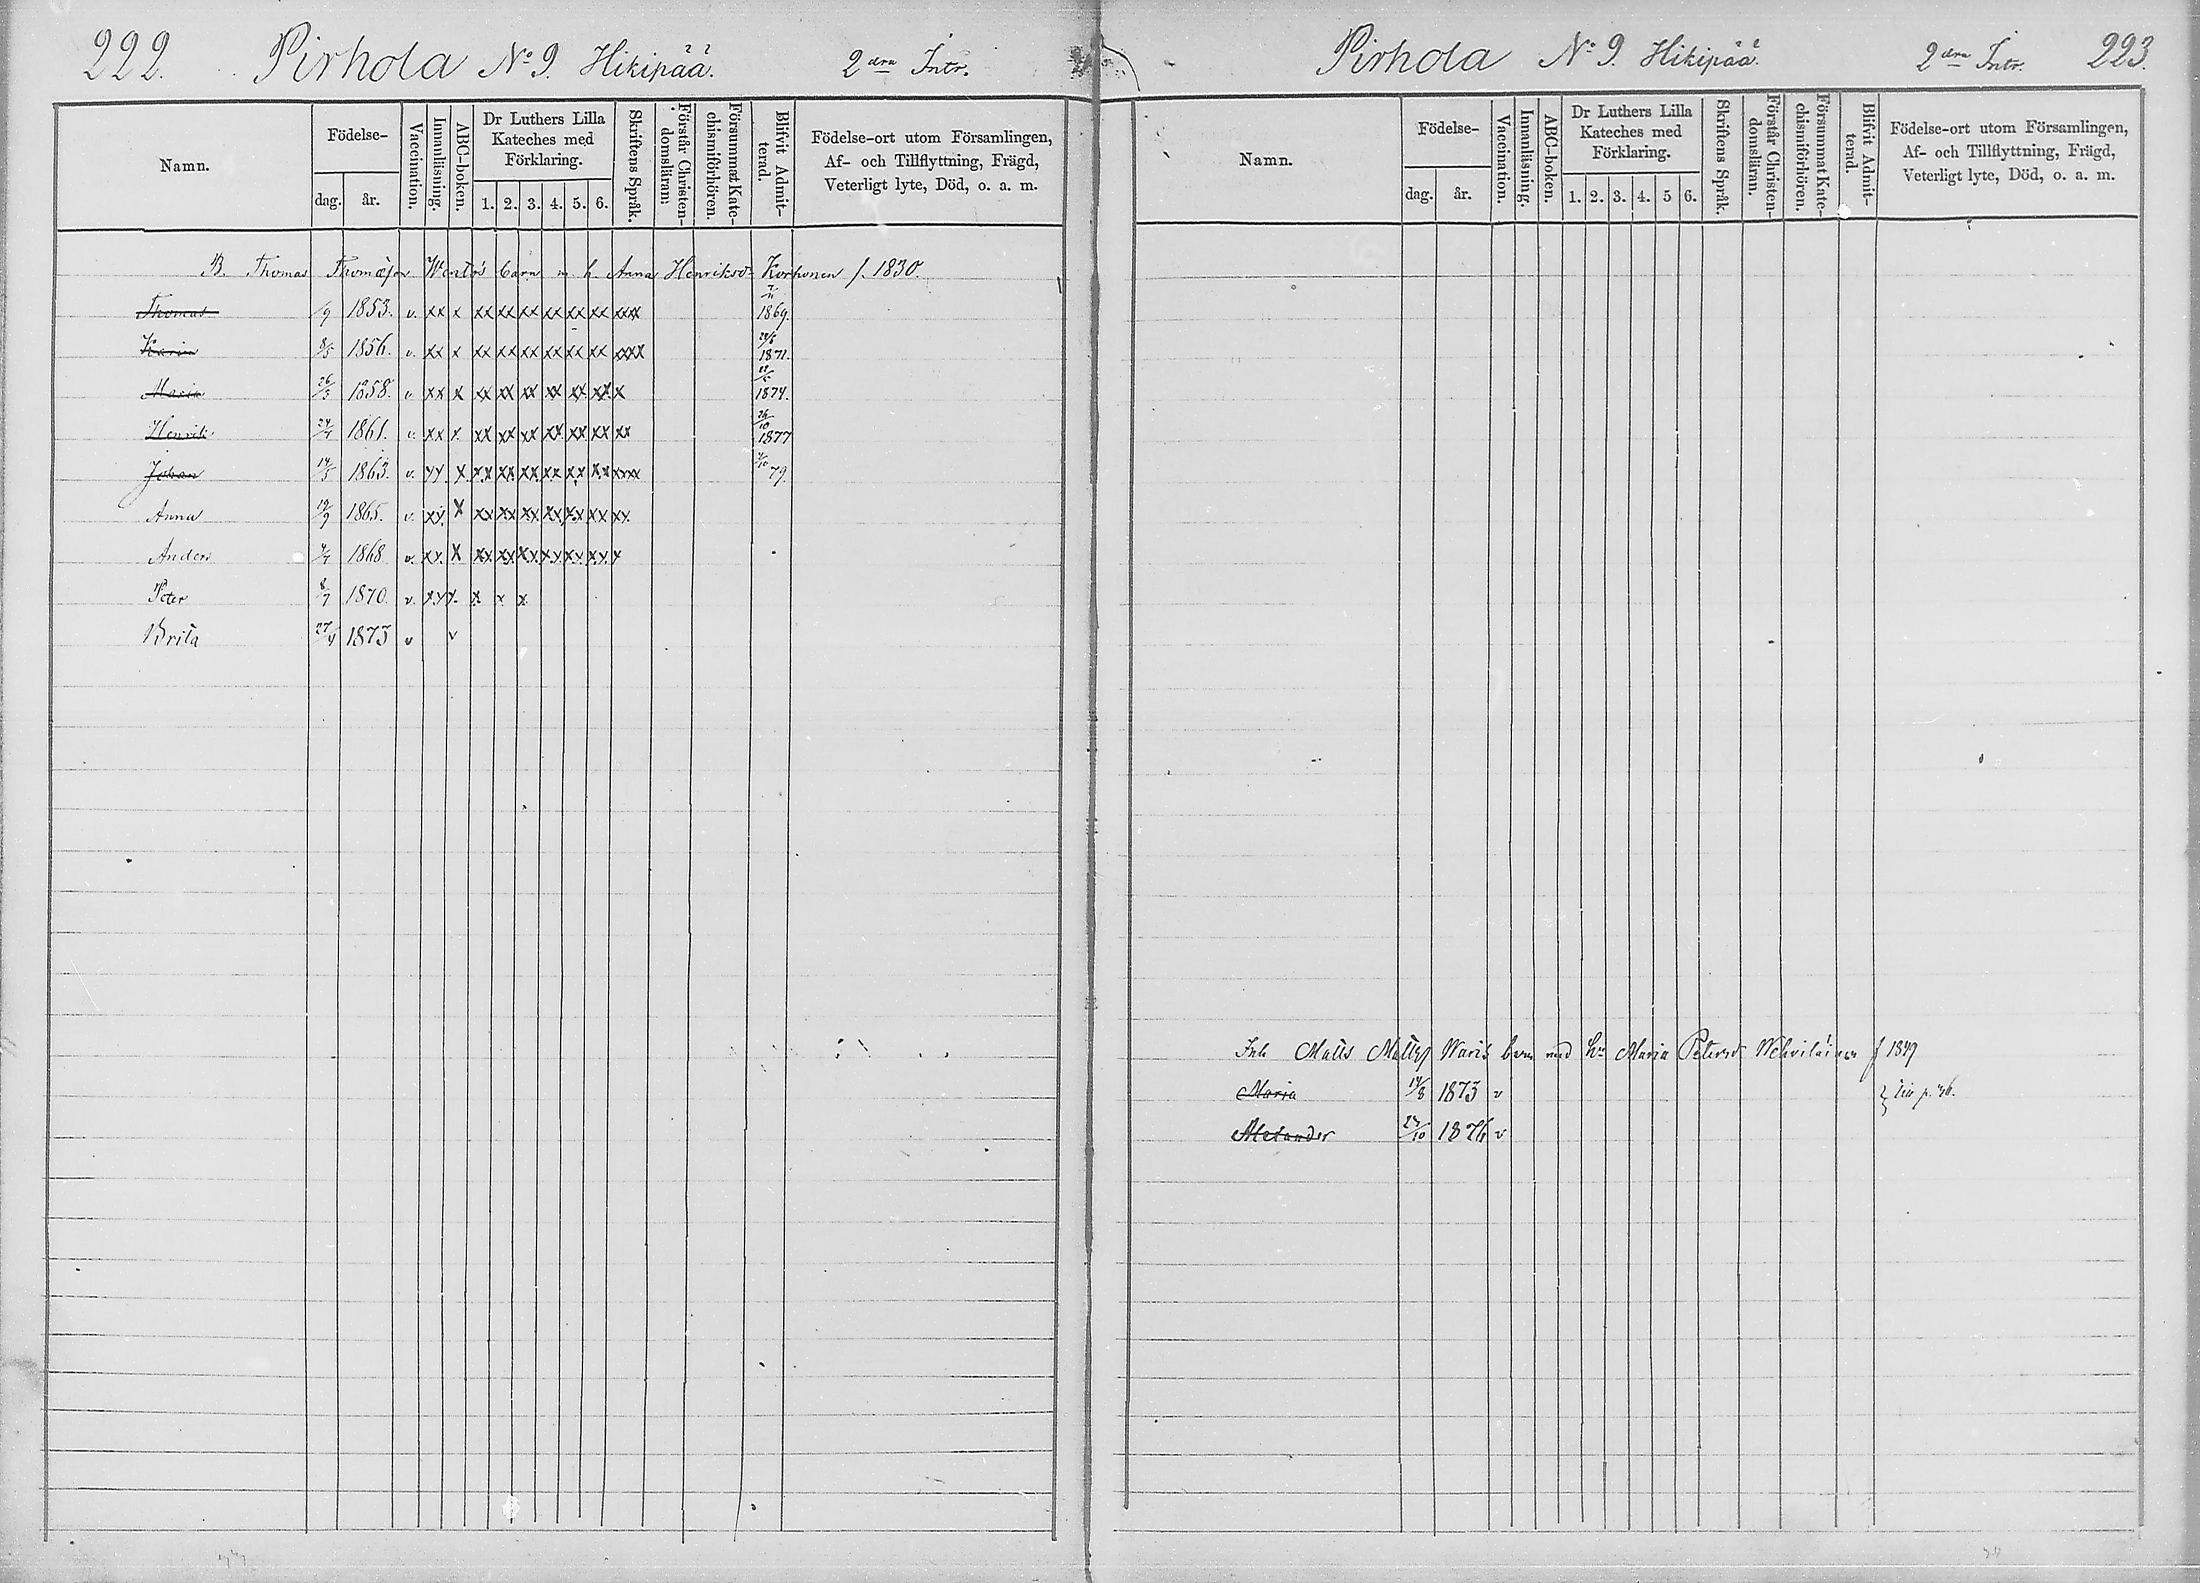 222. Pirhola No 9. Hikipää. 2dra Intr.
Namn. Födelse- dag. år. Vaccination. Innanläsning. ABC-boken. Dr Luthers Lilla Kateches med Förklaring. 1. 2. 3. 4. 5. 6. Skriftens Språk. Förstår Christen-domsläran. Försummat Kate-chismiförhören. Blifvit Admit-terad. Födelse-ort utom Församlingen, Af- och Tillflyttning, Frägd, Veterligt lyte, Död, o. a. m.
B. Thomas Thomæson barn m h. Anna Henriksdr Korhonen f. 1830.
Thomas /9 1853. v. xx x xx xx xx xx xx xx xxx 1869.
Karin 8/5 1856. v. xx x xx xx xx xx xx xx xxxx 1871.
Maria 26/3 1858. v. xx x xx xx xx xx xx xx x 1874.
Henrik 24/4 1861. v. xx x xx xx xx xx xx xx xx 26/10 1877
Johan 14/5 1863. v. xx x xx xx xx xx xx xx xxx 79.
Anna 19/9 1865. v. xx x xx xx xx xx xx xx xx
Anders 1868 v. xx x xx xx xx xx xx xx x
Peter 8/7 1870. v. xx x. x x x
Brita 27/4 1873 v v
Pirhola No 9. Hikipää. 2dra Intr. 223.
Namn. Födelse- dag. år. Vaccination. Innanläsning. ABC-boken. Dr Luthers Lilla Kateches med Förklaring. 1. 2. 3. 4. 5 6. Skriftens Språk. Förstår Christen-domsläran. Försummat Kate-chismiförhören. Blifvit Admit-terad. Födelse-ort utom Församlingen, Af- och Tillflyttning, Frägd, Veterligt lyte, Död, o. a. m.
Inh Matts Mattss Waris barn med hu Maria Petersdr Wehviläinen f 1849
Maria 14/8 1873 v
Alexander 24/10 1876 v